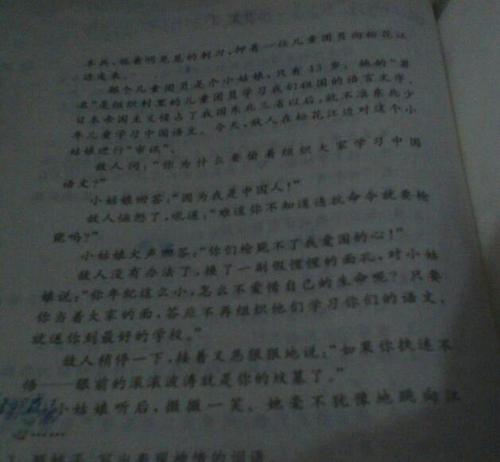 本兵,握着明晃晃的刺刀,押着一位儿童团员向松花江
边走来。
那个儿童团员是个小姑娘,只有13岁。她的“罪
过”是组织村里的儿童团员学习我们祖国的语言文字。
日本帝国主义侵占了我国东北三省以后,就不准东北少
年儿童学习中国语文。今天,敌人在松花江边对这个小
姑娘进行“审试”。
敌人问:“你为什么要偷着组织大家学习中国
语文?”
小姑娘回答:“因为我是中国人!”
敌人恼怒了,吼道:“难道你不知道违抗命令就要枪
毙吗?”
小姑娘大声回答:“你们枪毙不了我爱国的心!”
敌人没有办法了,换了一副假惺惺的面孔,对小姑
娘说:“你年纪这么小,怎么不爱惜自己的生命呢?只要
你当着大家的面,答应不再组织他们学习你们的语文,
就送你到最好的学校。”
敌人稍停一下,接着又恶狠狠地说:“如果你执迷不
悟——眼前的滚滚波涛就是你的坟墓了。”
小姑娘听后,微微一笑。她毫不犹像地跳向江
……
写出表现神情的词语